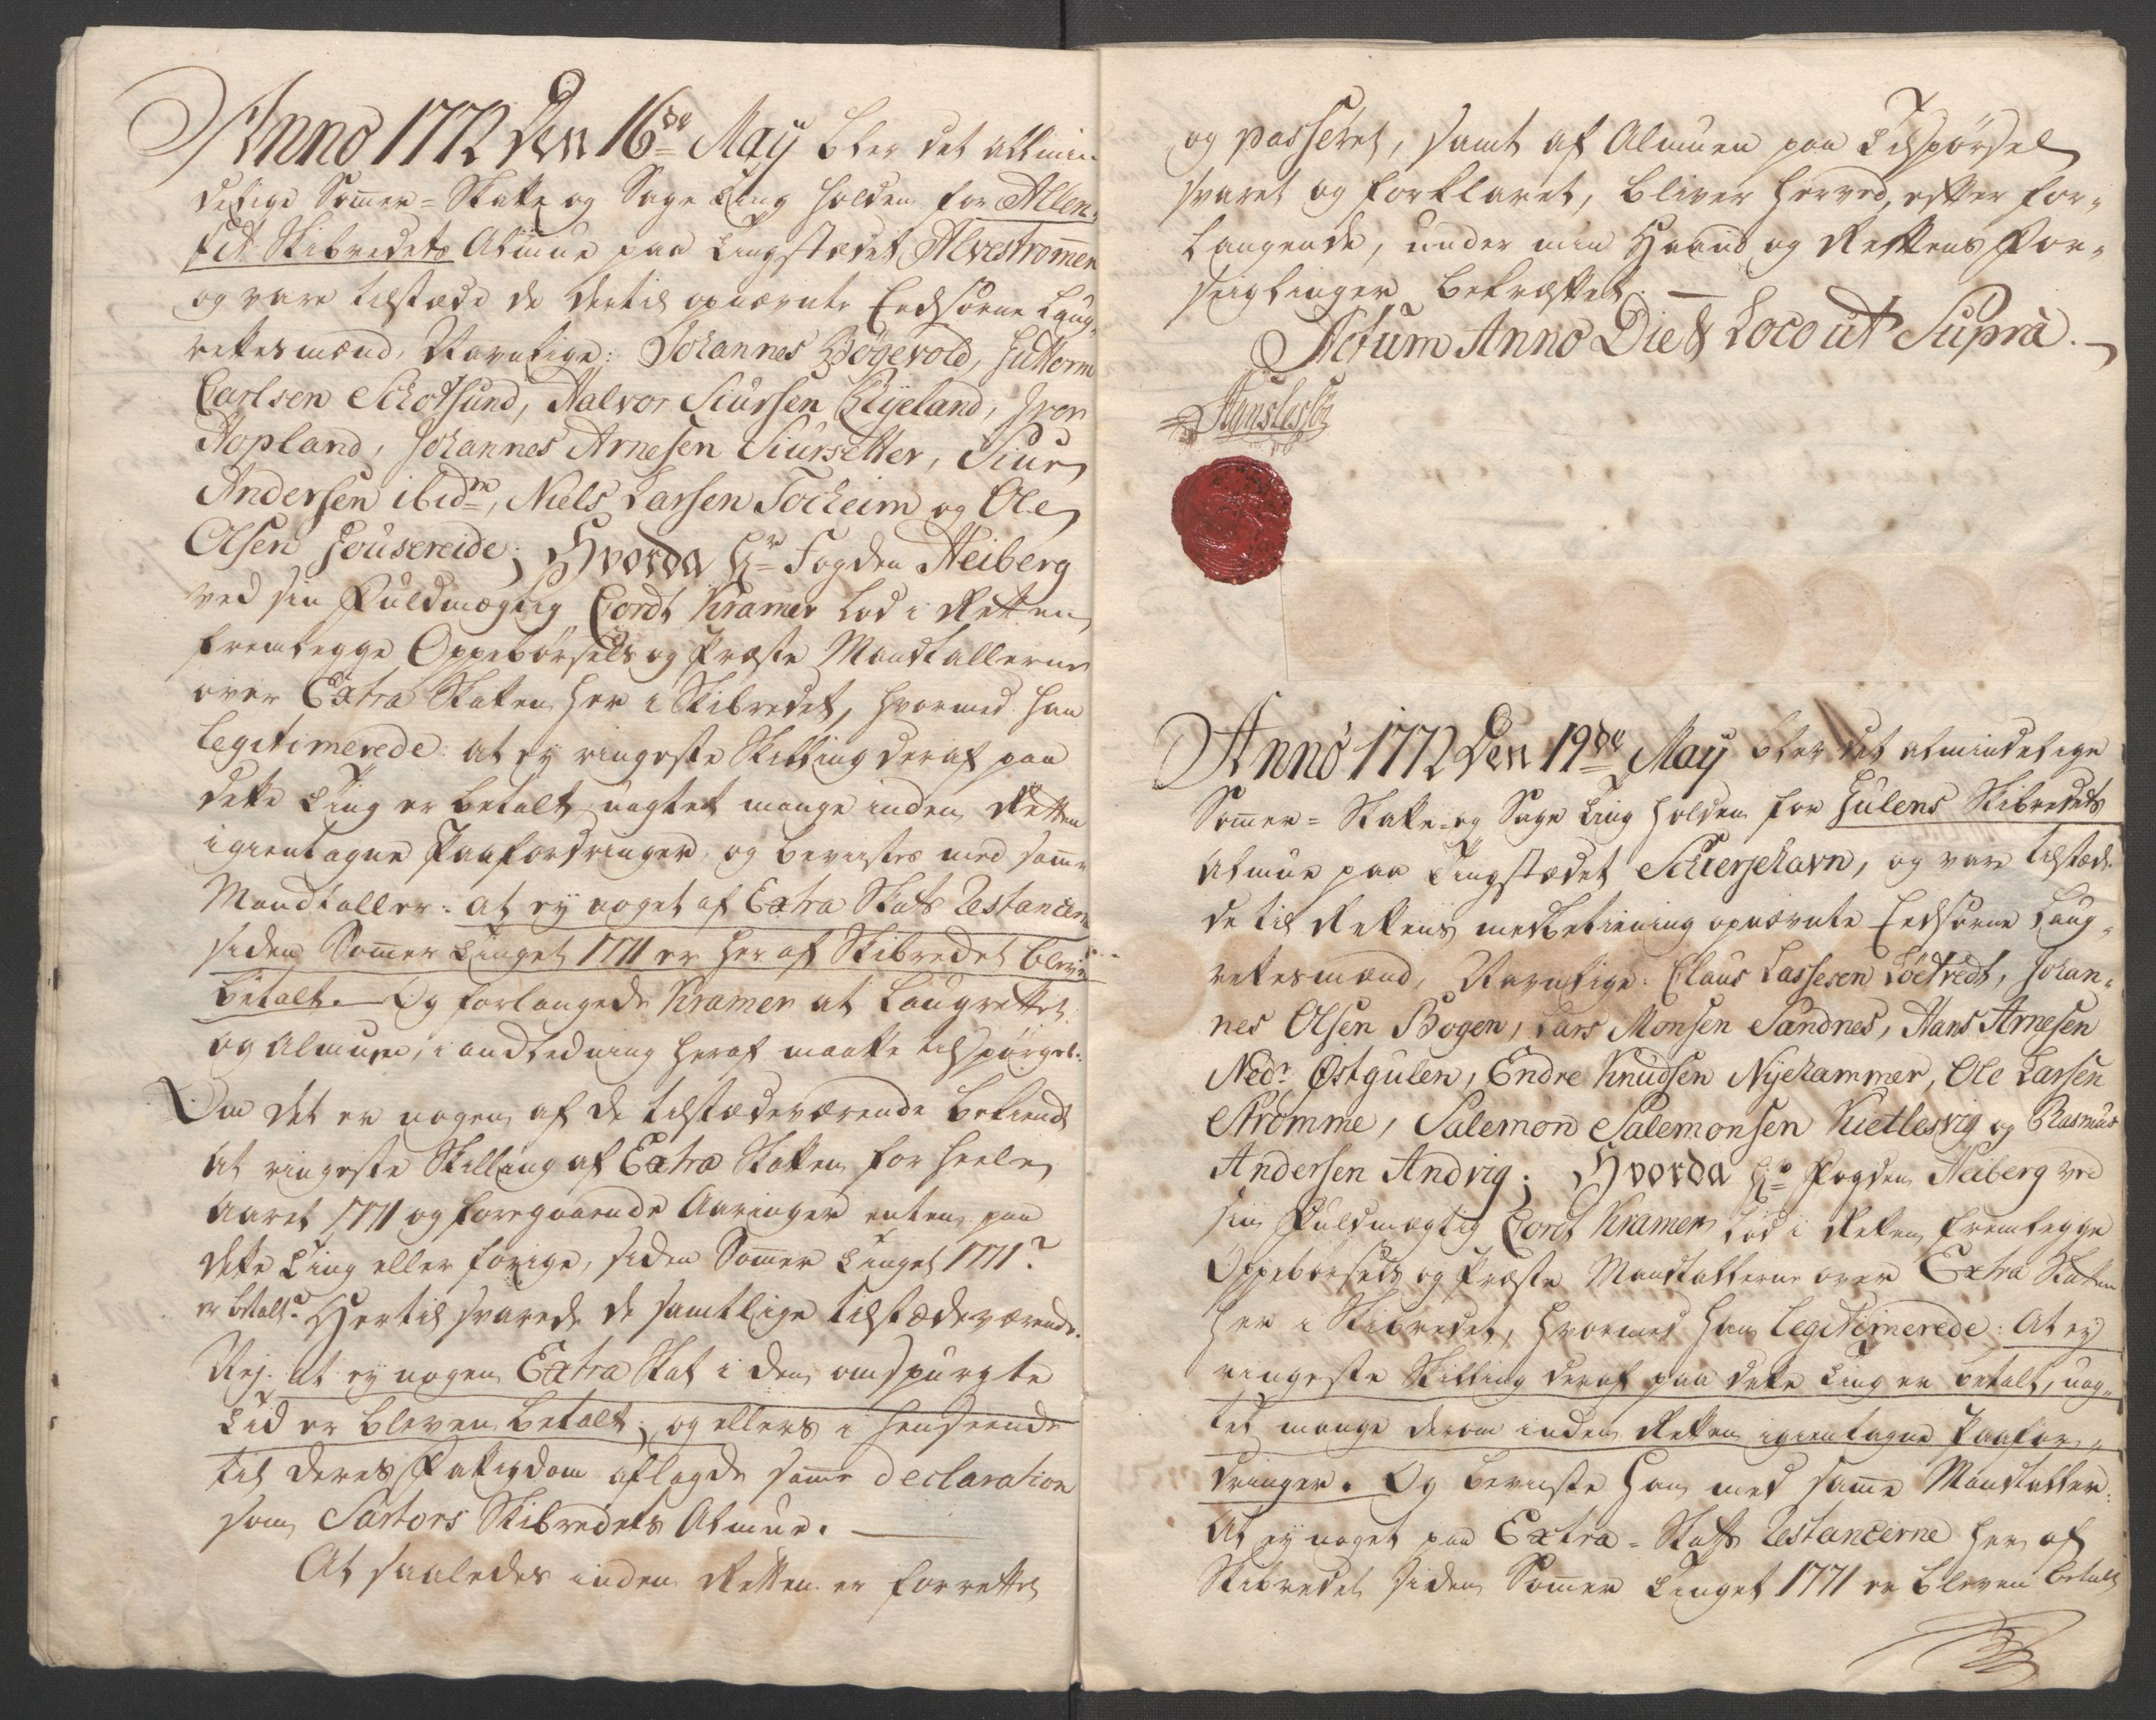 Anno 1772 Den 16de May blev det allmin-
delige Somer-Skatte og Sage Ting holden for Allen-
fit Skibredets Almue paa Tingstædet Alvestrommen
og vare tilstæde de dertil opnævnte Eedsorne Laug-
rettesmænd, Navnlige: Johannes Bøgevold, Guttorm
Carlsen Schotsund, Halvor Siursen Rÿeland, Iver
Hopland, Johannes Arnesen Siursetter, Siur
Andersen ibidm, Niels Larsen Tocheim og Ole
Olsen Housereide; Hvorda Hr Fogden Heiberg
ved sin Fuldmægtig Cordt Kramer lod i Retten
fremlegge Oppebørsels og Præste Mandtallerne
over Extra Skatten her i Skibredet, hvormed han
legitimerede: at ey ringeste Skilling deraf paa
dette Ting er betalt uagtet mange inden Retten
igientagne Paafordringer, og bevistes med samme
Mandtaller: at ey noget af Extra Skatts Restancen
siden Somer Tinget 1771 er her af Skibredet bleven
betalt. Og forlangede Kramer at Laugrettet
og Almuen, i andledning heraf maatte tilspørges:
Om det er nogen af de tilstædeværende bekiendt
at ringeste Skilling af Extra Skatten for heele
Aaret 1771 og foregaaende Aaringer enten paa
dette Ting eller forige, siden Somer Tinget 1771?
er betalt? Hertil svarede de samtlige tilstædeværende.
Nej. at ey nogen Extra Skat i den omspurgte
Tid er bleven betalt; og ellers i henseende
til deres Fatigdom aflagde samme declaration
som Sartors Skibredets Almue.
At saaledes inden Retten er forrettet
og passeret, samt af Almuen paa Tilspørsel
svaret og forklaret, bliver herved, efter for-
langende, under min Haand og Rettens For-
seiglinger bekræftet.
Actum Anno Die & Loco ut Supra.
Anno 1772 Den 19de May blev det almindelige
Somer-Skatte og Sage Ting holden for Gulens Skibredets
Almue paa Tingstædet Schierjehavn, og vare tilstæde
de til Rettens medbetiening opnævnte Eedsorne Laug-
rettesmænd, Navnlige: Claus Lassesen Löetredt, Johan-
nes Olsen Bogen, Lars Monsen Sandnes, Hans Arnesen
Nedr Østgulen, Endre Knudsen Nÿehammer, Ole Larsen
Stromme, Salemon Salemonsen Kietlesvig og Rasmus
Andersen Andvig; Hvorda Hr Fogden Heiberg ved
sin Fuldmægtig Cordt Kramer lod i Retten fremlegge
Oppebørsels og Præste Mandtallerne over Extra Skatten
her i Skibredet, hvormed han legitimerede: At ey
ringeste Skilling deraf paa dette Ting er betalt, uag-
tet mange derom inden Retten igientagne Paafor-
dringer. Og beviiste han med samme Mandtaller:
At ey noget paa Extra-Skatts Restancerne her af
Skibredet siden Somer Tinget 1771 er bleven betalt